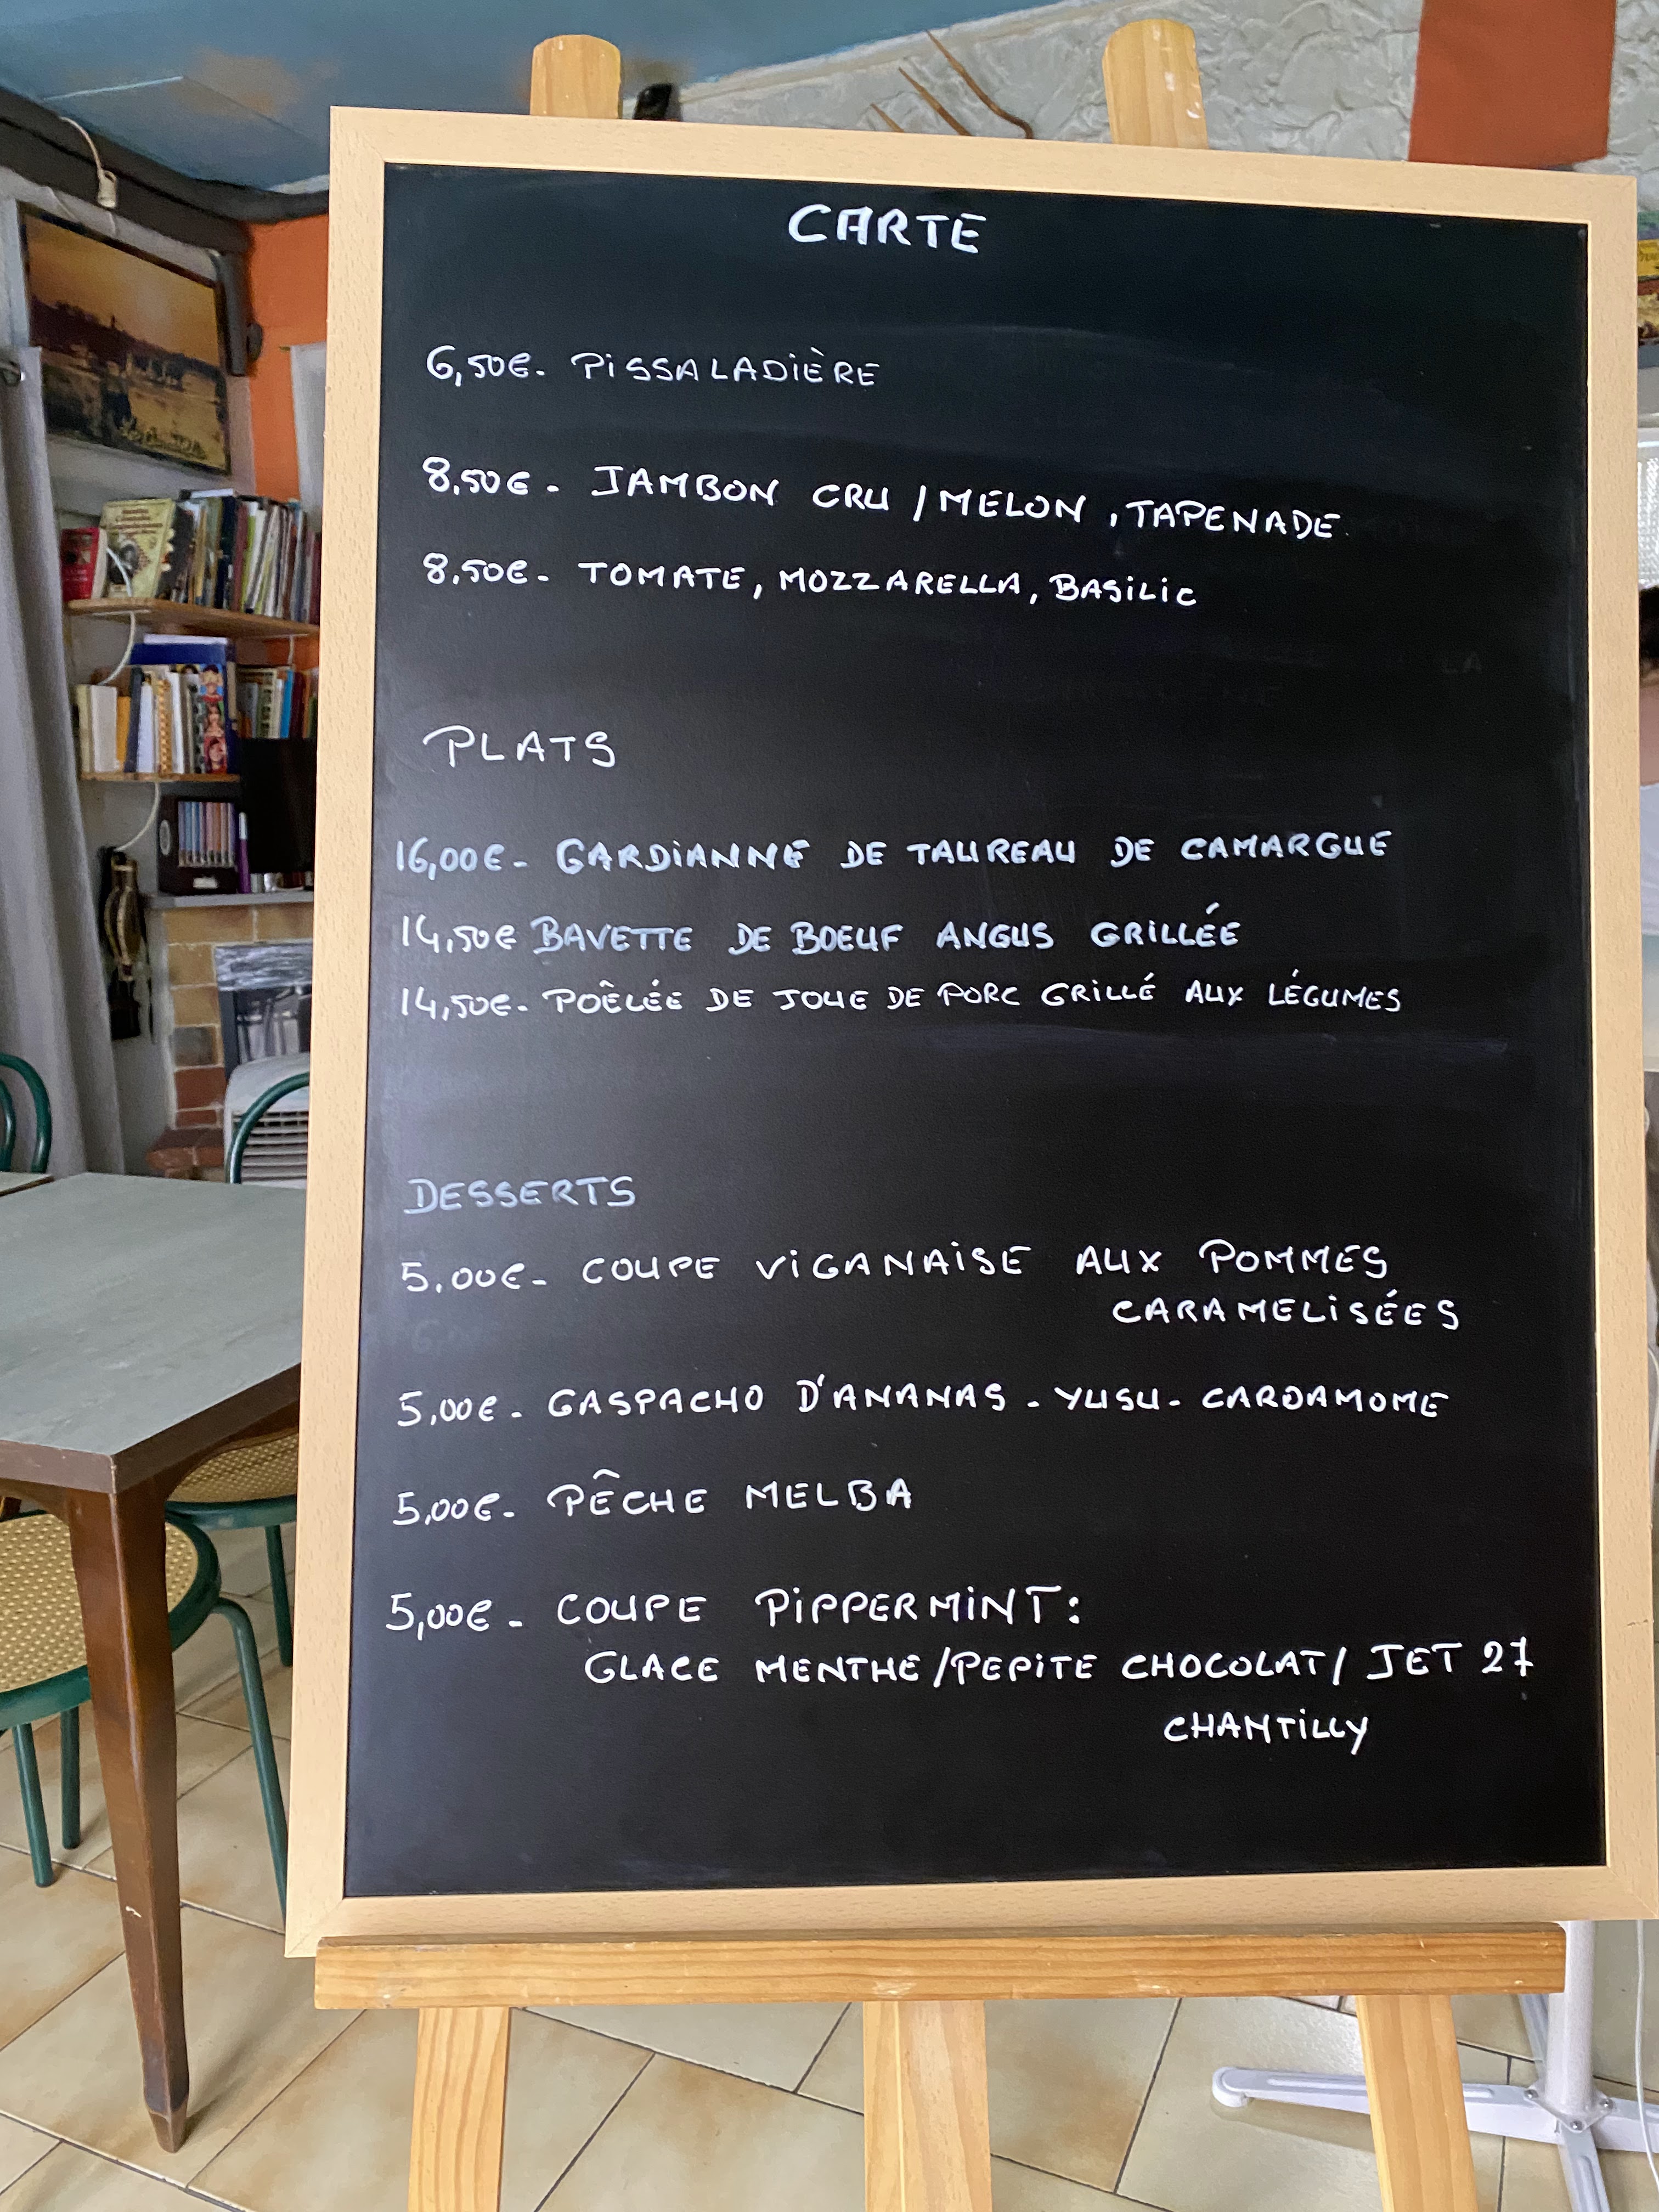 CARTE
6,50€- PiSSALADiÈRE
8,50€- JAMBON CRU / MELON , TAPENADE.
8,50€- TOMATE, MOZZARELLA, BASiLiC
PLATS
16,00€- GARDiANNE DE TAUREAU DE CAMARGUE
14,50€ BAVETTE DE BOEUF ANGUS GRILLÉE
14,50€- POÊLÉE DE JOUE DE PORC GRILLÉ AUX LÉGUMES
DESSERTS
5,00€- COUPE ViGANAiSE AUX POMMES
CARAMELiSÉES
5,00€- GASPACHO D'ANANAS - YUSU - CARDAMOME
5,00€- PÊCHE MELBA
5,00€- COUPE PiPPERMiNT:
GLACE MENTHE/PEPiTE CHOCOLAT/ JET 27
CHANTiLLY